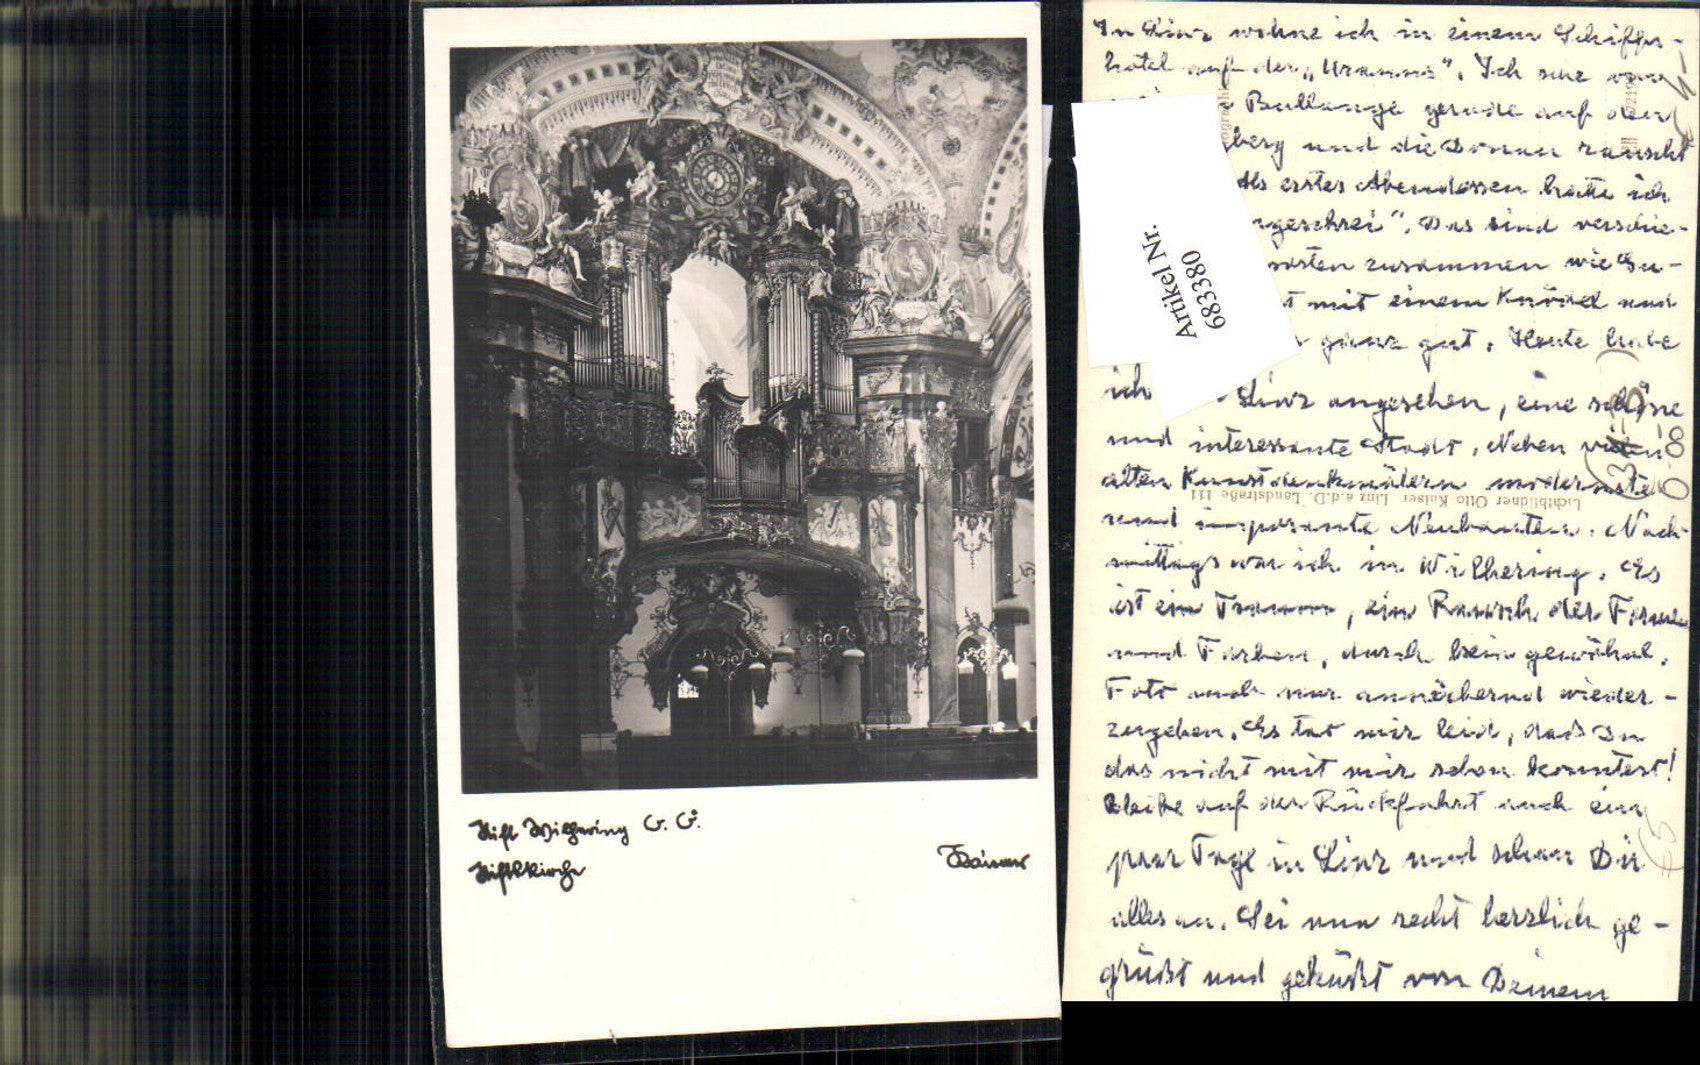 Stift Wilhering O. Ö.
Stiftskirche
Kaiser
Artikel Nr.
683380
In Linz wohne ich in einem Schiffs-
hotel auf der „Uranus“. Ich sehe vom
Bullauge gerade auf den
berg und die Donau rauscht
Als erstes Abendessen hatte ich
ngeschrei“. Das sind verschie-
sorten zusammen wie Gu-
t mit einem Knödel und
ganz gut. Heute habe
ich Linz angesehen, eine schöne
und interessante Stadt. Neben vielen
alten Kunstdenkmälern modernste
und imposante Neubauten. Nach-
mittags war ich in Wilhering. Es
ist ein Traum, ein Rausch der Formen
und Farben, durch kein gewöhnl.
Foto auch nur annähernd wieder-
zugeben. Es tat mir leid, daß Du
das nicht mit mir sehen konntest!
Bleibe auf der Rückfahrt auch ein
paar Tage in Linz und schau Dir
alles an. Sei nun recht herzlich ge-
grüßt und geküßt von Deinem
Lichtbildner Otto Kaiser, Linz a.d.D. Landstraße 111